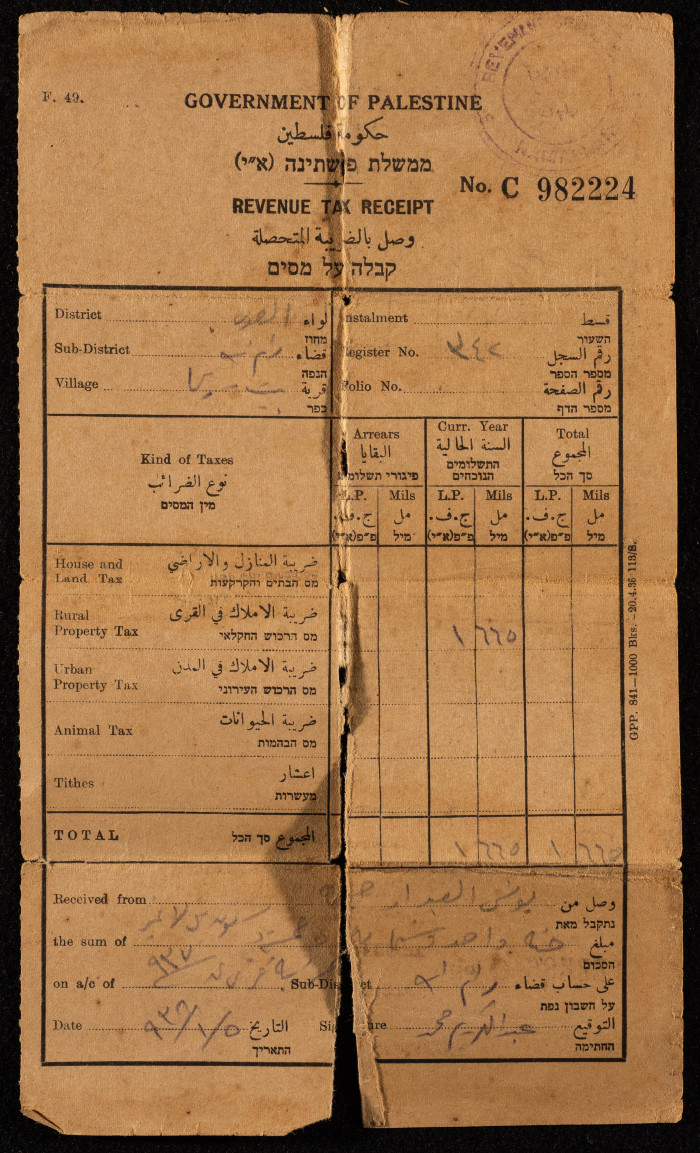 F. 49.
GOVERNMENT OF PALESTINE
حكومة فلسطين
ממשלת פלשתינה (א״י)
No. C 982224
REVENUE TAX RECEIPT
وصل بالضريبة المتحصلة
קבלה על מסים
District لواء
מחוז
Sub-District قضاء
הנפה
Village قرية
כפר
Instalment قسط
השעור
Register No. ٣٤٢ رقم السجل
מספר הספר
Folio No. رقم الصفحة
מספר הדף
Kind of Taxes
نوع الضرائب
מין המסים
Arrears
البقايا
פיגורי תשלומים
Curr. Year
السنة الحالية
התשלומים
הנוכחים
Total
المجموع
סך הכל
L.P. Mils L.P. Mils L.P. Mils
ج.ف. مل ج.ف. مل ج.ف. مل
פ״פ(א״י) מיל פ״פ(א״י) מיל פ״פ(א״י) מיל
House and Land Tax ضريبة المنازل والاراضي
מס הבתים והקרקעות
Rural Property Tax ضريبة الاملاك في القرى
מס הרכוש החקלאי
١ ٦٦٥
Urban Property Tax ضريبة الاملاك في المدن
מס הרכוש העירוני
Animal Tax ضريبة الحيوانات
מס הבהמות
Tithes اعشار
מעשרות
TOTAL المجموع סך הכל
١ ٦٦٥ ١ ٦٦٥
Received from وصل من
נתקבל מאת
the sum of مبلغ
הסכום
on a/c of ٩٣٧ Sub-District رام الله على حساب قضاء
על חשבון נפת
Date ٩٣٩/١/٥ التاريخ Signature عبدالكريم التوقيع
התאריך החתימה
GPP. 841—1000 Bks.—20.4.36 113/S.